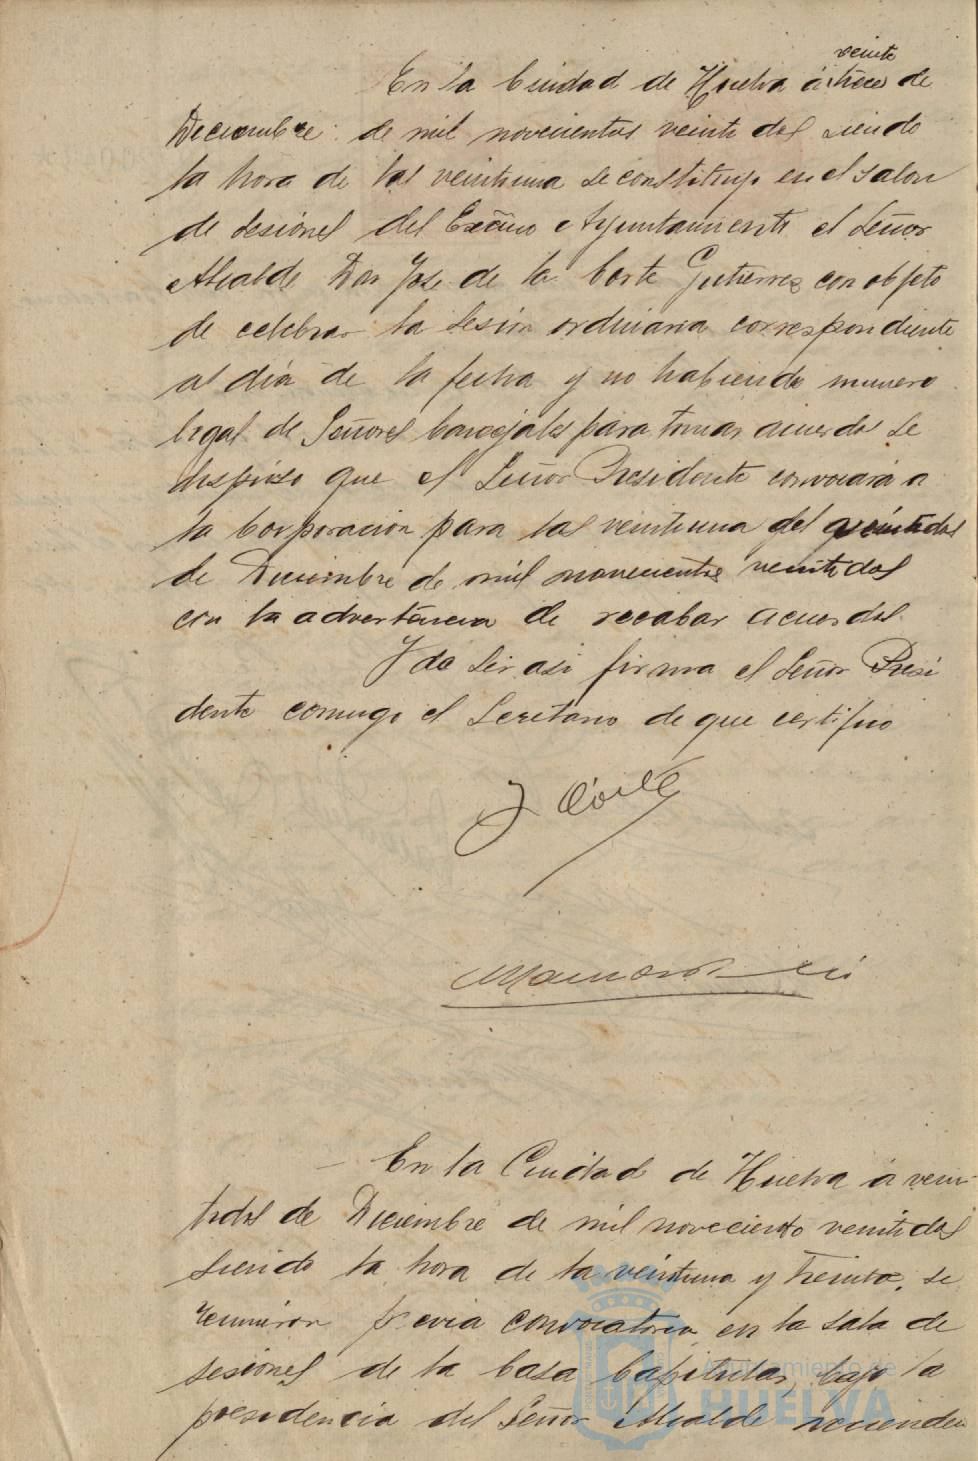 veinte
En la Ciudad de Huelva á trece de
Diciembre de mil novecientos veinte dos siendo
la hora de las veintiuna se constituyo en el salon
de sesiones del Excmo Ayuntamiento el Señor
Alcalde Don Jose de la Corte Gutierrez con objeto
de celebrar la sesion ordinaria correspondiente
al dia de la fecha y no habiendo numero
legal de Señores Concejales para tomar acuerdos se
dispuso que el Señor Presidente convocara a
la Corporacion para las veintiuna del veintidos
de Diciembre de mil novecientos veintidos
con la advertencia de recabar acuerdos.
Y de ser asi firma el Señor Presi
dente conmigo el Secretario de que certifico
J Corte
En la Ciudad de Huelva á vein-
tidos de Diciembre de mil noveciento veintidos
siendo la hora de la veintiuna y treinta, se
reunieron previa convocatoria en la sala de
sesiones de la Casa Capitular, bajo la
presidencia del Señor Alcalde
Ayuntamiento de
HUELVA